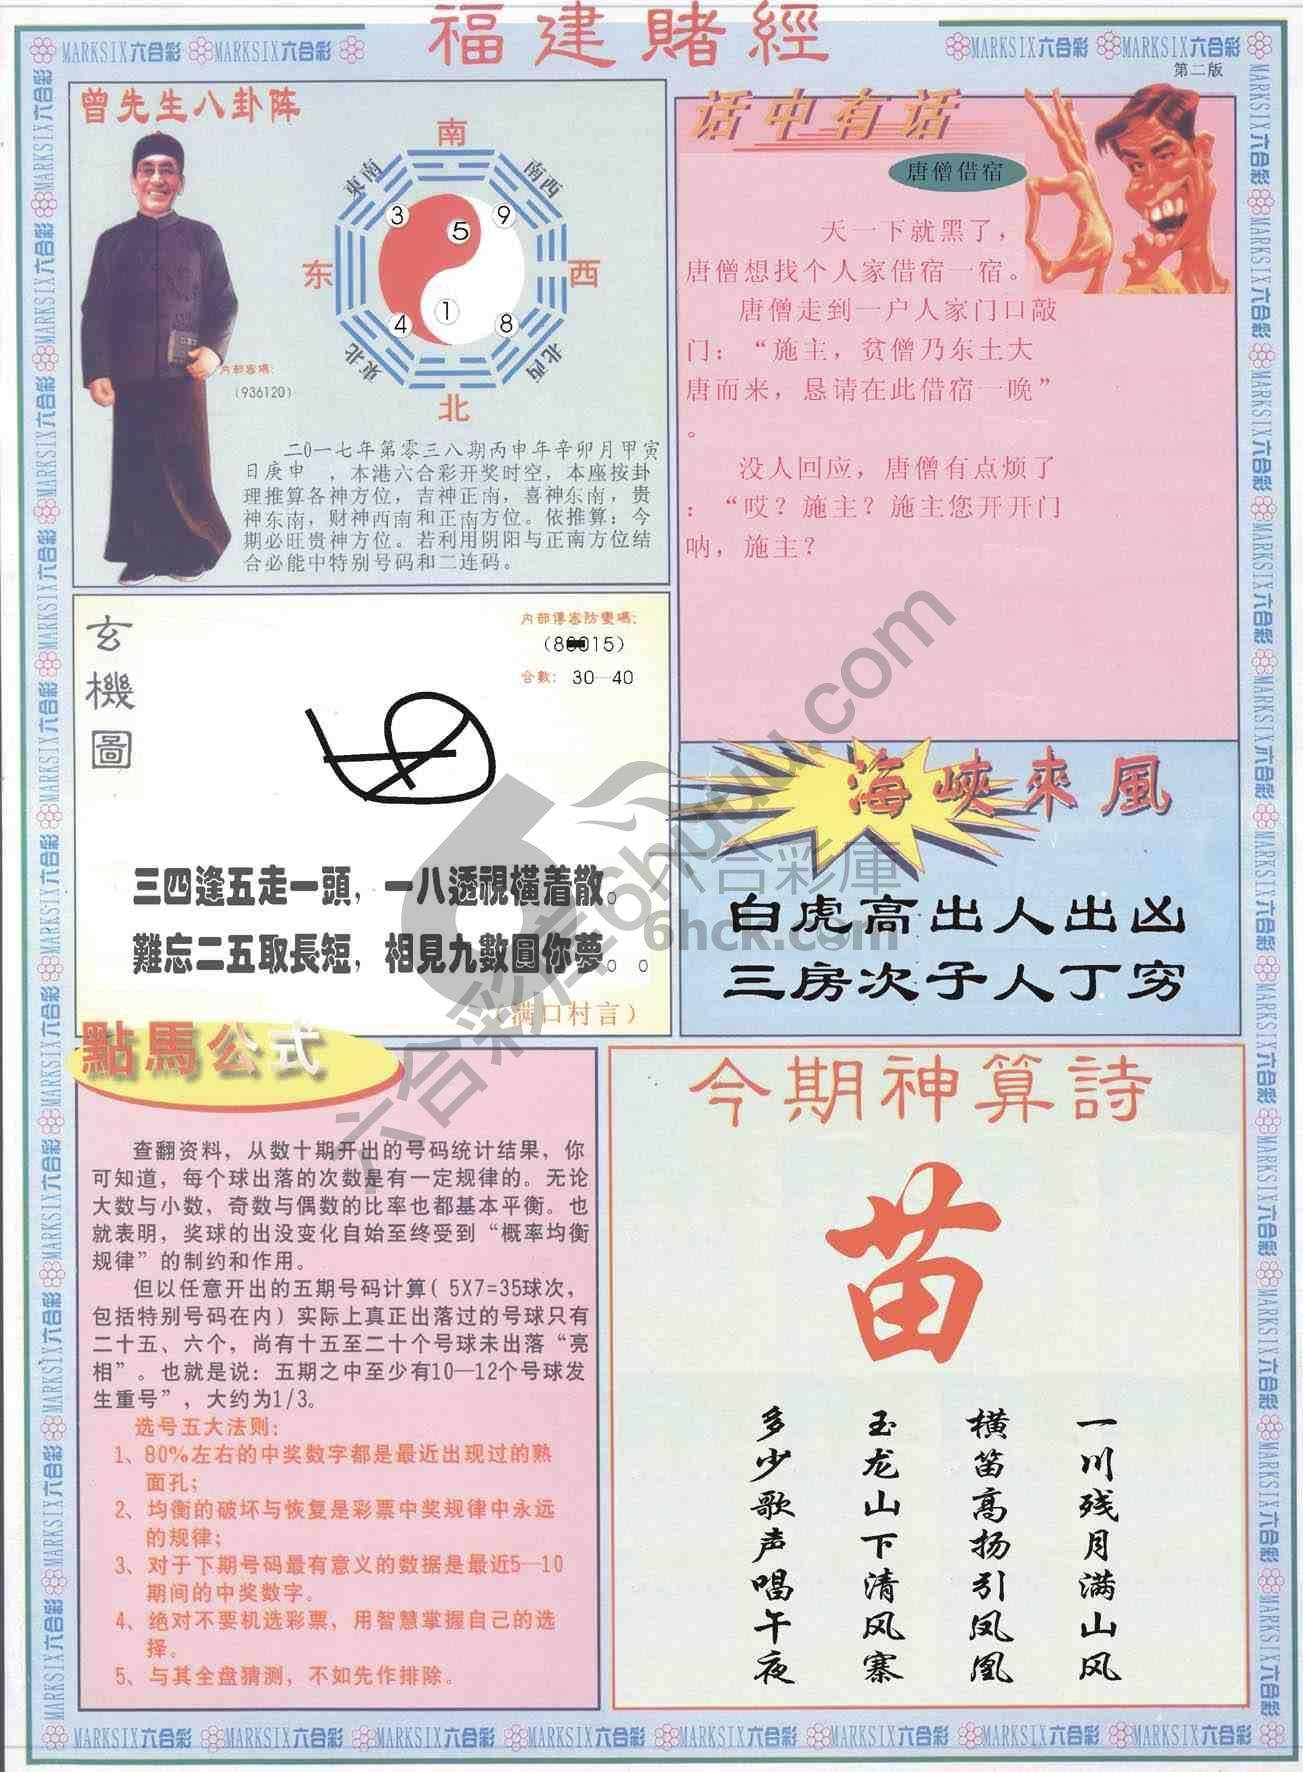 福建賭經
MARKSIX六合彩 MARKSIX六合彩
MARKSIX六合彩 MARKSIX六合彩
第二版
曾先生八卦阵
南
東南
南西
3
9
5
东
西
1
4
8
東北
北西
北
内部密碼:
(936120)
二0一七年第零三八期丙申年辛卯月甲寅
日庚申 ,本港六合彩开奖时空,本座按卦
理推算各神方位,吉神正南,喜神东南,贵
神东南,财神西南和正南方位。依推算:今
期必旺贵神方位。若利用阴阳与正南方位结
合必能中特别号码和二连码。
话中有话
唐僧借宿
天一下就黑了,
唐僧想找个人家借宿一宿。
唐僧走到一户人家门口敲
门:“施主,贫僧乃东土大
唐而来,恳请在此借宿一晚”
。
没人回应,唐僧有点烦了
:“哎?施主?施主您开开门
呐,施主?
玄機圖
内部傳密防變碼:
合數: 30—40
三四逢五走一頭,一八透視橫着散。
難忘二五取長短,相見九數圓你夢。。
(满口村言)
海峽來風
白虎高出人出凶
三房次子人丁穷
點馬公式
查翻资料,从数十期开出的号码统计结果,你
可知道,每个球出落的次数是有一定规律的。无论
大数与小数,奇数与偶数的比率也都基本平衡。也
就表明,奖球的出没变化自始至终受到“概率均衡
规律”的制约和作用。
但以任意开出的五期号码计算( 5X7=35球次,
包括特别号码在内)实际上真正出落过的号球只有
二十五、六个,尚有十五至二十个号球未出落“亮
相”。也就是说:五期之中至少有10—12个号球发
生重号”,大约为1/3。
选号五大法则:
1、80%左右的中奖数字都是最近出现过的熟
面孔;
2、均衡的破坏与恢复是彩票中奖规律中永远
的规律;
3、对于下期号码最有意义的数据是最近5—10
期间的中奖数字。
4、绝对不要机选彩票,用智慧掌握自己的选
择。
5、与其全盘猜测,不如先作排除。
今期神算詩
苗
一川残月满山风
横笛高扬引凤凰
玉龙山下清风寨
多少歌声唱午夜
六合彩库 6hduku.com
六合彩庫
6hck.com
MARKSIX六合彩 MARKSIX六合彩 MARKSIX六合彩 MARKSIX六合彩 MARKSIX六合彩 MARKSIX六合彩 MARKSIX六合彩 MARKSIX六合彩